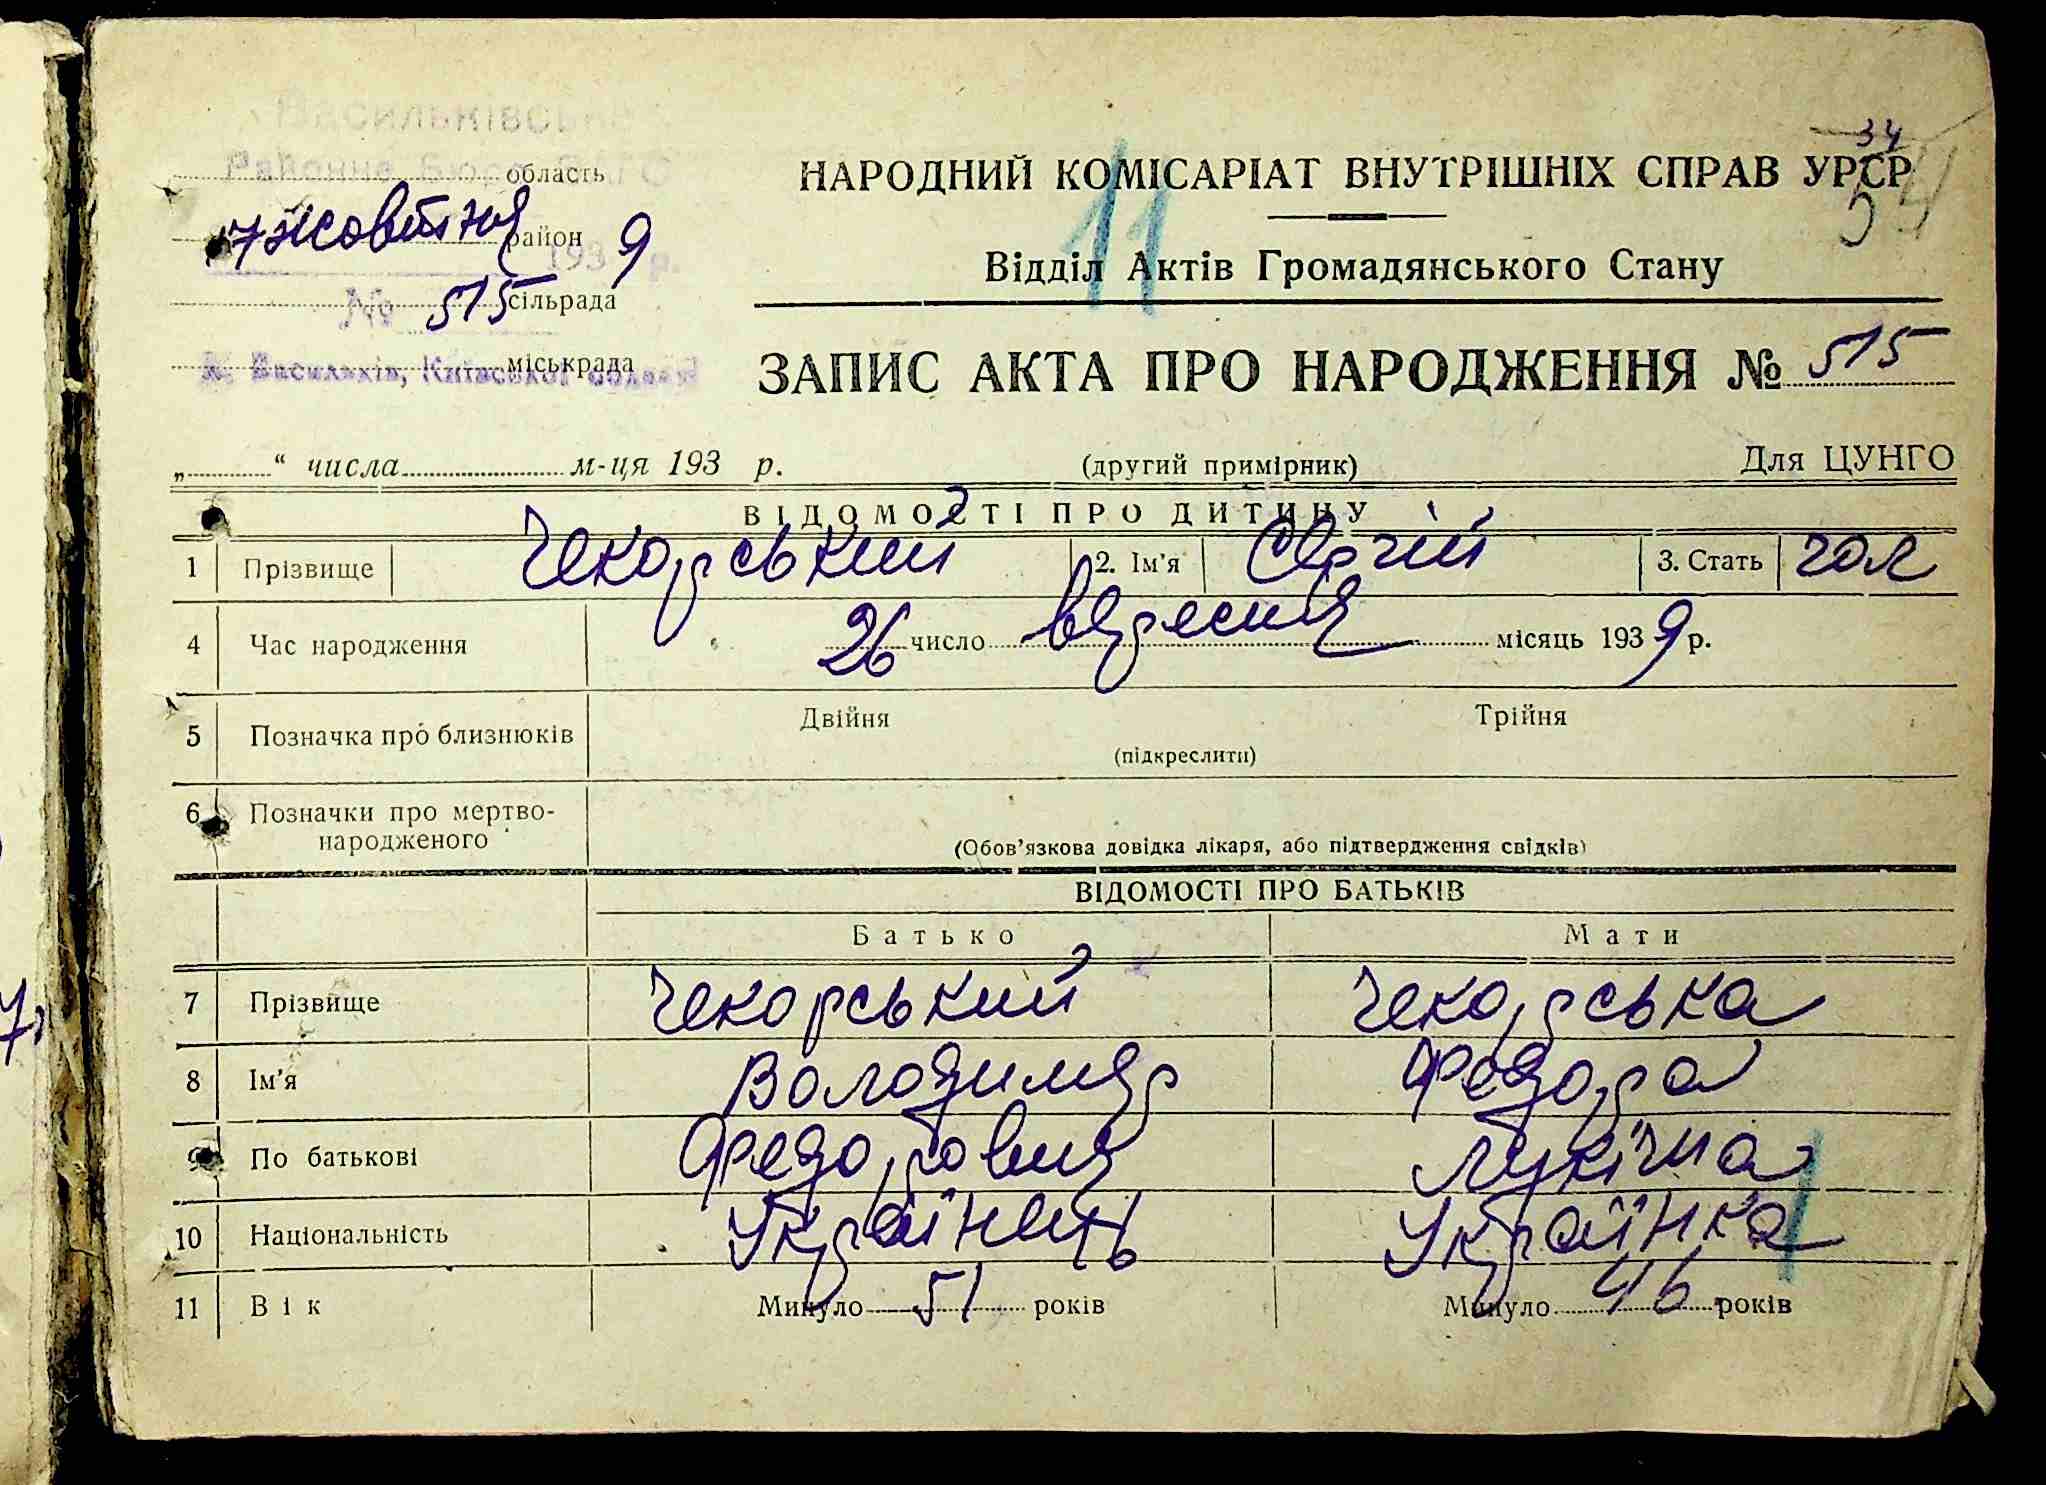 34
54
11
Васильківське
Районне Бюро ЗАГС
область
НАРОДНИЙ КОМІСАРІАТ ВНУТРІШНІХ СПРАВ УРСР
7 жовтня район 1939 р.
Відділ Актів Громадянського Стану
№ 515 сільрада
м. Васильків, Київської області міськрада
ЗАПИС АКТА ПРО НАРОДЖЕННЯ № 515
„ “ числа м-ця 193 р. (другий примірник) Для ЦУНГО
ВІДОМОСТІ ПРО ДИТИНУ
1 Прізвище Чекорський 2. Ім'я Сергій 3. Стать чол
4 Час народження 26 число вересня місяць 1939 р.
5 Позначка про близнюків Двійня Трійня
(підкреслити)
6 Позначки про мертво-
народженого
(Обов'язкова довідка лікаря, або підтвердження свідків)
ВІДОМОСТІ ПРО БАТЬКІВ
Батько Мати
7 Прізвище Чекорський Чекорська
8 Ім'я Володимир Федора
9 По батькові Федорович Лукічна
10 Національність Українець Українка
11 Вік Минуло 51 років Минуло 46 років